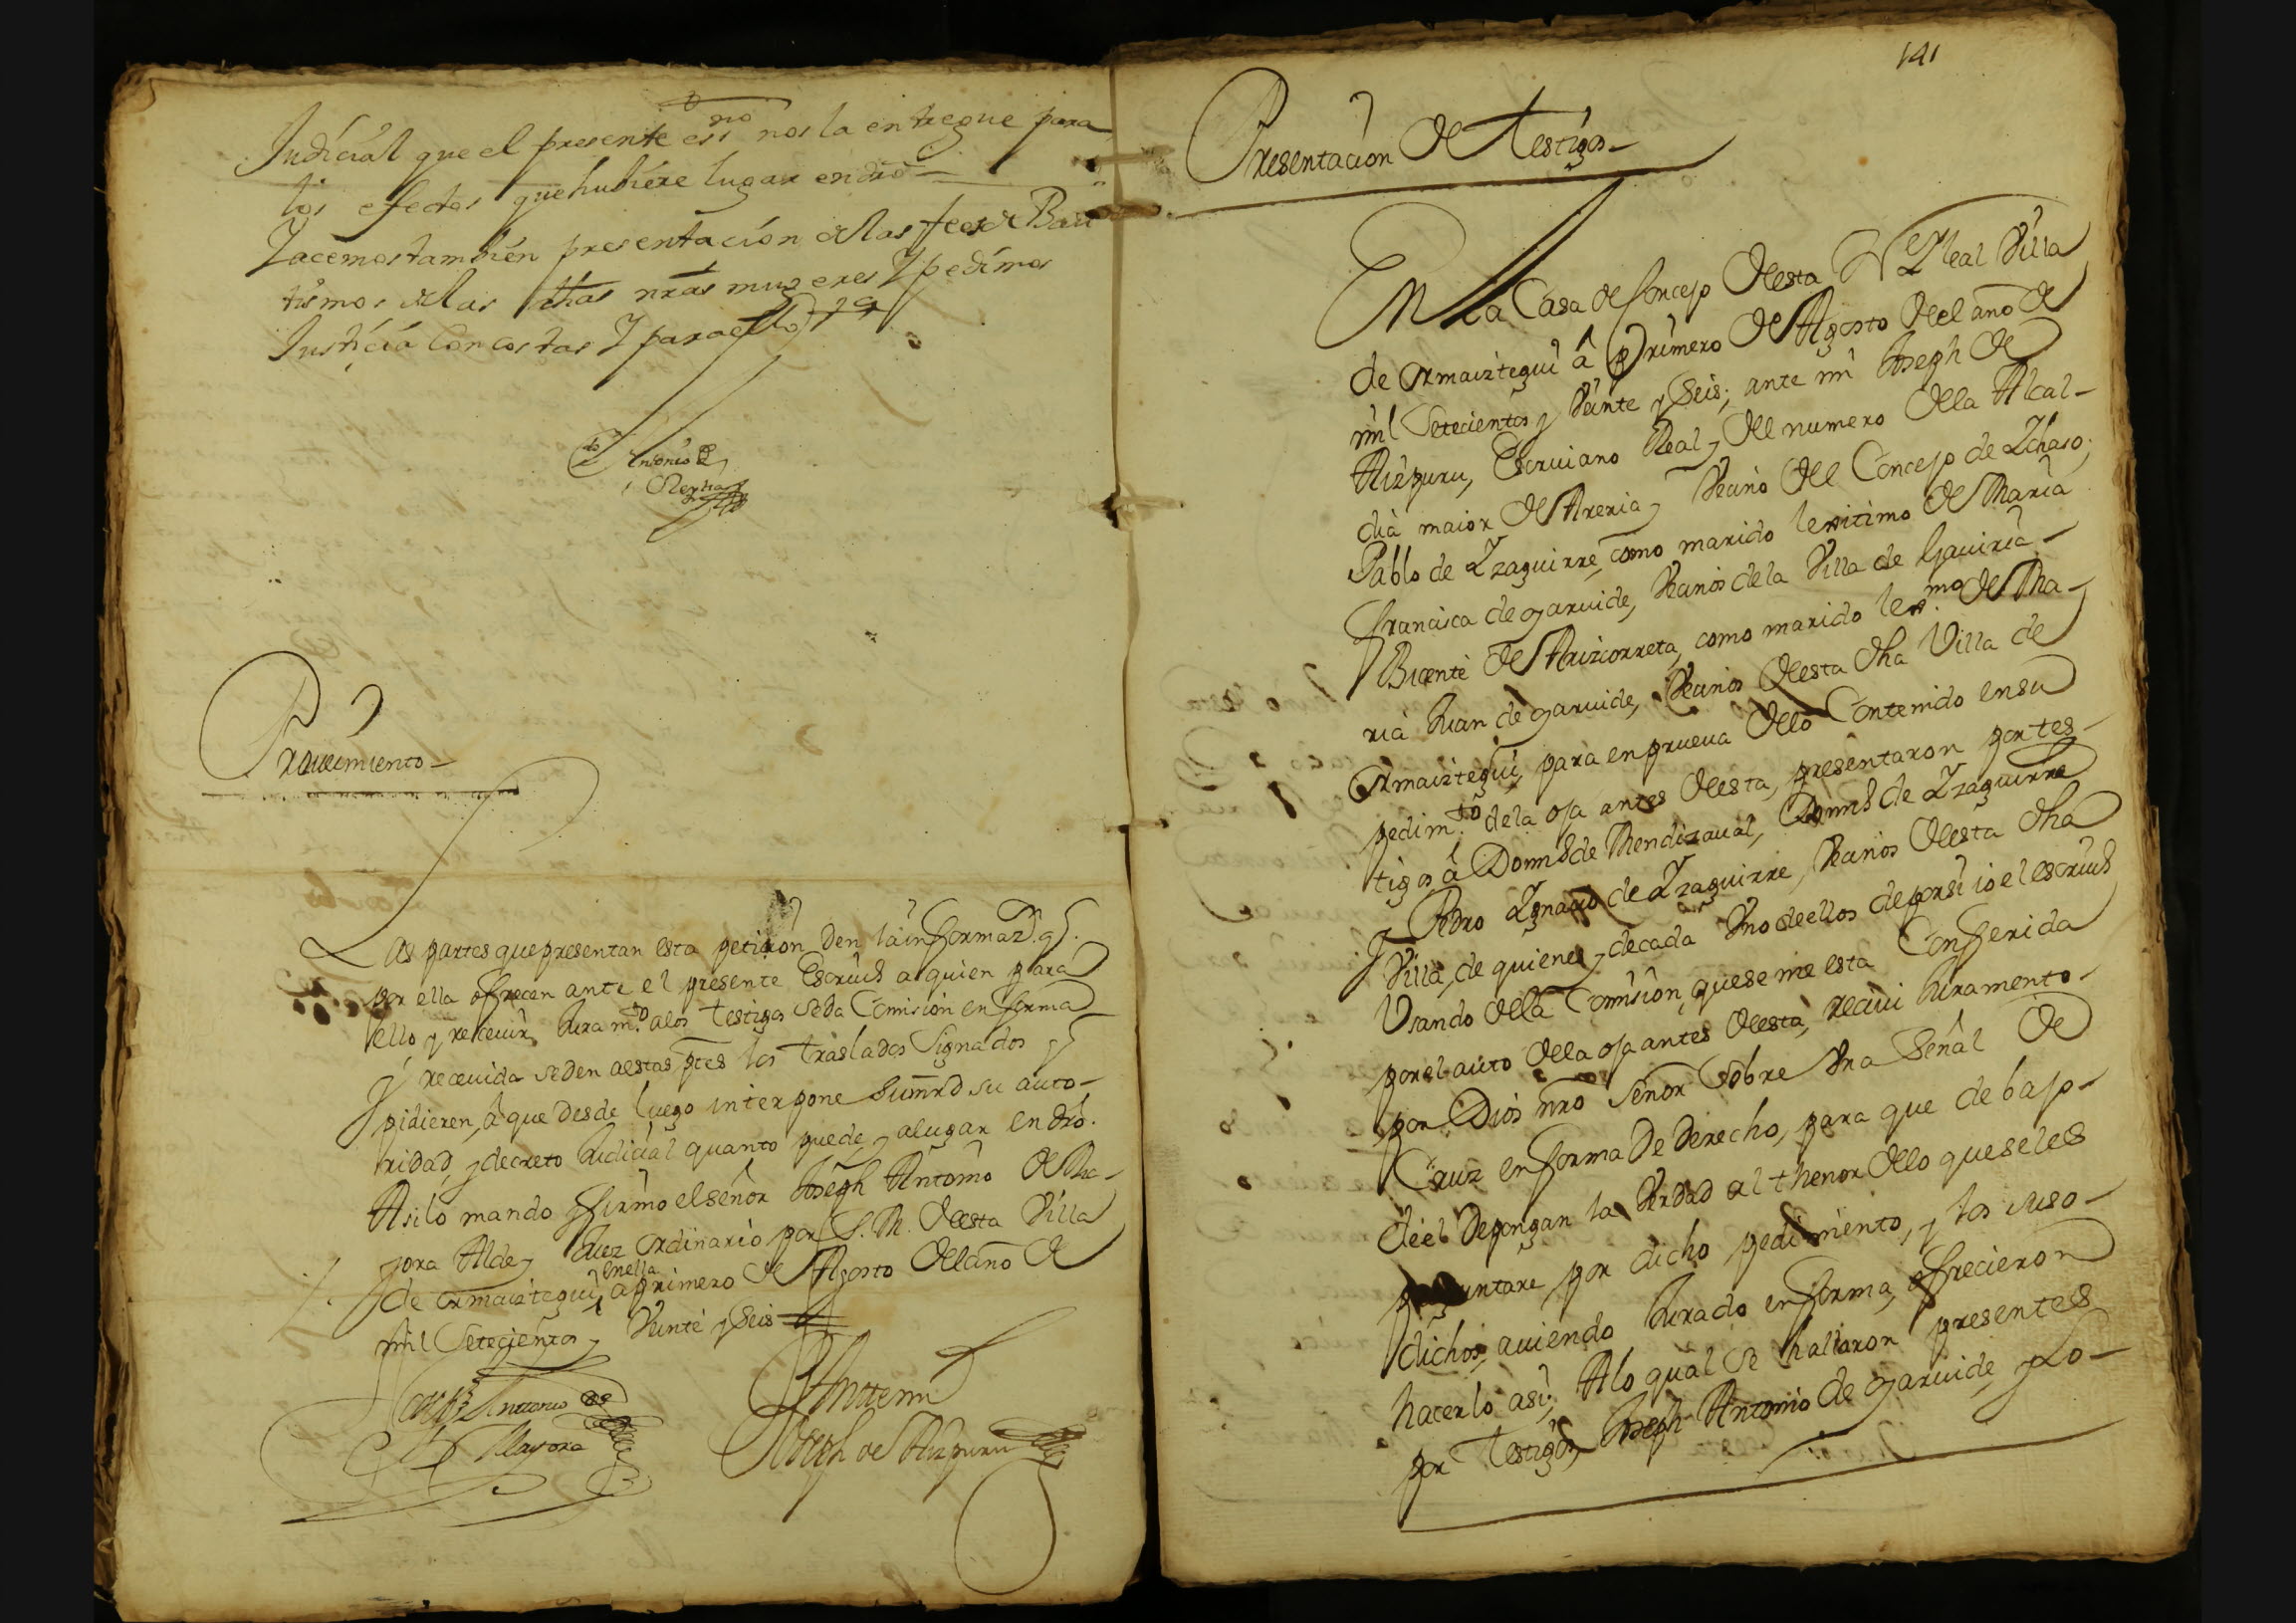 Judicial que el presente essno nos la entregue para
los efectos que hubiere lugar en dro
Y acemos tambien presentacion de las fees de Bau
tismos de las dhas nras mugeres Y pedimos
Justicia Con costas Y para ello
Antonio de
Proueimiento
Las partes que presentan esta peticion Den la informazn. q
por ella ofrecen ante el presente Escriuo a quien para
ello, y receuir Juramto. a los testigos se da Comision en forma
y receuida se den a estas ptes los traslados Signados q
pidieren, â que Desde luego interpone Summrd su auto-
ridad, y decreto Judicial quanto puede, y a lugar en dro.
Asi lo mando y firmo el señor Joseph Antonio de Ma-
yora Alde y Juez ordinario por S. M. desta Villa
de ormaiztegui, en ella a primero de Agosto del año de
mil Setecientos y Veinte y Seis
Joseph Anttonio de
Mayora
Ante mi
Joseph de Aizpuru
141
Presentacion de testigos
En la Casa de Concejo desta N Real Villa
de ormaiztegui â primero de Agosto del año de
mil Setecientos y Veinte y Seis; ante mi Joseph de
Aizpuru, Escriuano Real, y del numero de la Alcal-
dia maior de Areria, y Vecino del Concejo de Ychaso;
Pablo de Yzaguirre, como marido lexitimo de Maria
Francisca de garuide, Vecinos de la Villa de Gauiria
y Bicente de Arizcorreta, como marido lexmo. de Ma-
ria Juan de garuide, Vecinos desta dha Villa de
ormaiztegui, para en prueua de lo Contenido en su
pedimto. de la oja antes desta, presentaron por tes-
tigos â Domgo de Mendizaual, Domgo de Yzaguirre
y Pedro Ygnacio de Yzaguirre, Vecinos desta dha
Villa, de quienes y de cada Vno de ellos de por si io el escriuo
Vsando de la Comision, que se me esta Conferida
por el auto de la oja antes desta, reciui Juramento
por Dios nro señor sobre Vna Señal de
Cruz en forma De Derecho, para que de bajo
de el Depongan la Verdad al thenor de lo que se les
preguntare por dicho pedimiento, y los suso
dichos, auiendo Jurado en forma, ofrecieron
hacerlo asi; A lo qual se hallaron presentes
por testigos Joseph Antonio de garuide, y Lo-